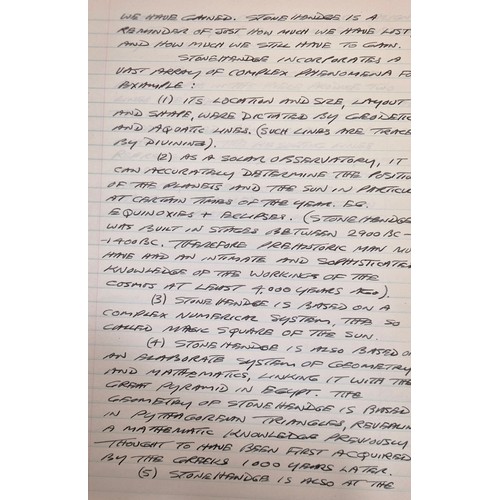 WE HAVE GAINED. STONEHENDGE IS A
REMINDER OF JUST HOW MUCH WE HAVE LOST
AND HOW MUCH WE STILL HAVE TO GAIN.
STONEHENDGE INCORPORATES A
VAST ARRAY OF COMPLEX PHENOMENA FO
EXAMPLE :
(1) ITS LOCATION AND SIZE, LAYOUT
AND SHAPE, WERE DICTATED BY GEODETIC
AND AQUATIC LINES. (SUCH LINES ARE TRACE
BY DIVINING).
(2) AS A SOLAR OBSERVATORY, IT
CAN ACCURATALY DETERMINE THE POSITIO
OF THE PLANETS AND THE SUN IN PARTICUL
AT CERTAIN TIMES OF THE YEAR. EG.
EQUINOXIES + ECLIPSES. (STONEHENDGE
WAS BUILT IN STAGES BETWEEN 2900 BC -
-1400BC. THEREFORE PREHISTORIC MAN MU
HAVE HAD AN INTIMATE AND SOPHISTICATED
KNOWLEDGE OF THE WORKINGS OF THE
COSMOS AT LEAST 4,000 YEARS AGO).
(3) STONEHENDGE IS BASED ON A
COMPLEX NUMERICAL SYSTEM, THE SO
CALLED MAGIC SQUARE OF THE SUN.
(4) STONEHENDGE IS ALSO BASED O
AN ELABORATE SYSTEM OF GEOMETRY
AND MATHEMATICS, LINKING IT WITH THE
GREAT PYRAMID IN EGYPT. THE
GEOMETRY OF STONEHENDGE IS BASED
IN PYTHAGOREAN TRIANGLES, REVEALIN
A MATHEMATIC KNOWLEDGE PREVIOUSLY
THOUGHT TO HAVE BEEN FIRST ACQUIRED
BY THE GREEKS 1000 YEARS LATER.
(5) STONEHENDGE IS ALSO AT THE